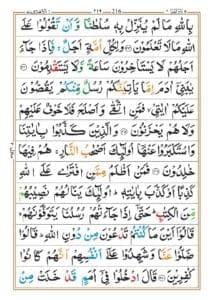 بِاللّٰهِ مَا لَمْ يُنَزِّلْ بِهٖ سُلْطٰنًا وَّ اَنْ تَقُوْلُوْا عَلَى
اللّٰهِ مَا لَا تَعْلَمُوْنَ ۝ وَلِكُلِّ اُمَّةٍ اَجَلٌ ۚ فَاِذَا جَآءَ
اَجَلُهُمْ لَا يَسْتَاْخِرُوْنَ سَاعَةً وَّلَا يَسْتَقْدِمُوْنَ ۝
يٰبَنِيْٓ اٰدَمَ اِمَّا يَاْتِيَنَّكُمْ رُسُلٌ مِّنْكُمْ يَقُصُّوْنَ
عَلَيْكُمْ اٰيٰتِيْ ۙ فَمَنِ اتَّقٰى وَاَصْلَحَ فَلَا خَوْفٌ عَلَيْهِمْ
وَلَا هُمْ يَحْزَنُوْنَ ۝ وَالَّذِيْنَ كَذَّبُوْا بِاٰيٰتِنَا
وَاسْتَكْبَرُوْا عَنْهَآ اُولٰٓئِكَ اَصْحٰبُ النَّارِ ۚ هُمْ فِيْهَا
خٰلِدُوْنَ ۝ فَمَنْ اَظْلَمُ مِمَّنِ افْتَرٰى عَلَى اللّٰهِ
كَذِبًا اَوْ كَذَّبَ بِاٰيٰتِهٖ ؕ اُولٰٓئِكَ يَنَالُهُمْ نَصِيْبُهُمْ
مِّنَ الْكِتٰبِ ؕ حَتّٰٓى اِذَا جَآءَتْهُمْ رُسُلُنَا يَتَوَفَّوْنَهُمْ ۙ
قَالُوْٓا اَيْنَ مَا كُنْتُمْ تَدْعُوْنَ مِنْ دُوْنِ اللّٰهِ ؕ قَالُوْا
ضَلُّوْا عَنَّا وَشَهِدُوْا عَلٰٓى اَنْفُسِهِمْ اَنَّهُمْ كَانُوْا
كٰفِرِيْنَ ۝ قَالَ ادْخُلُوْا فِيْٓ اُمَمٍ قَدْ خَلَتْ مِنْ